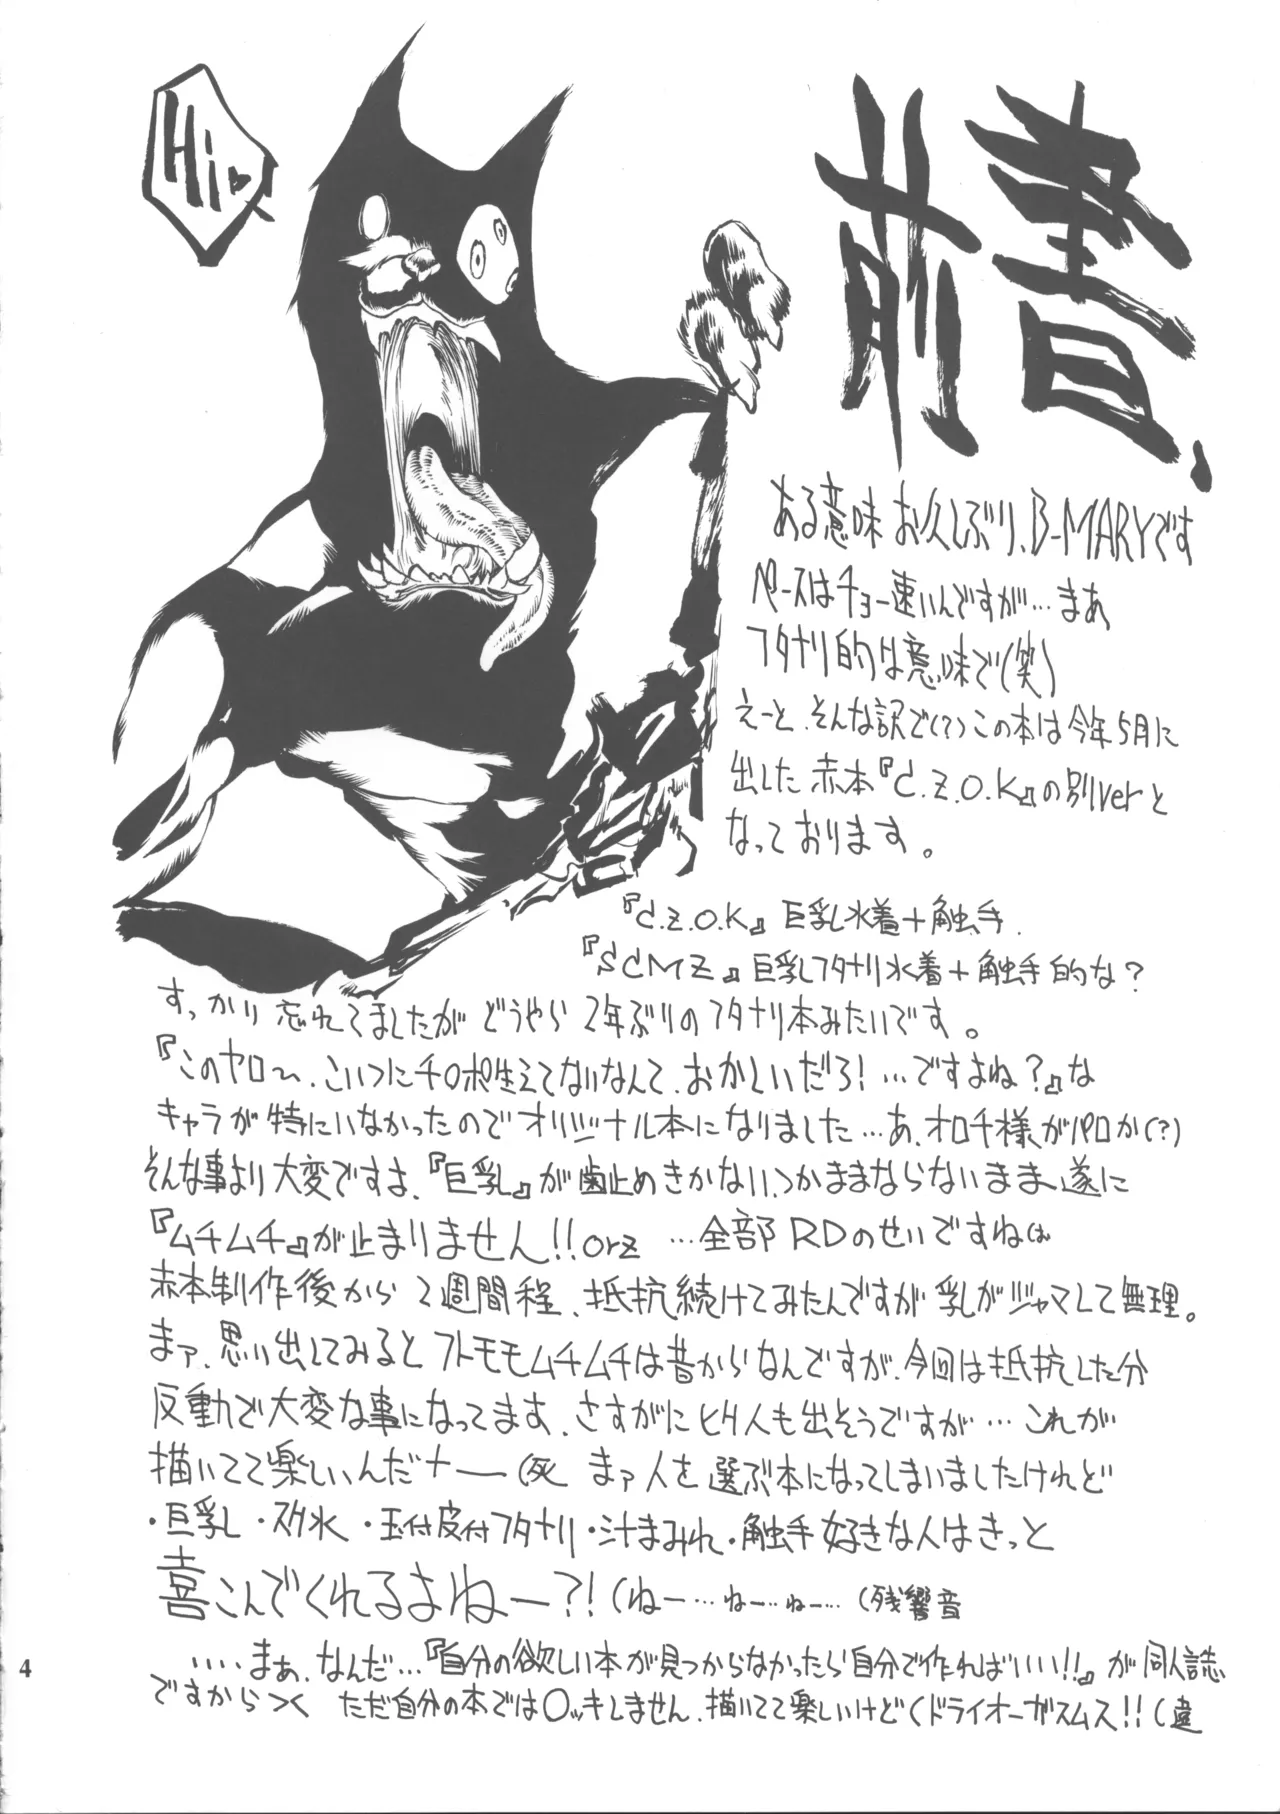 Hi♥
前書、
ある意味お久しぶり、B-MARYです
ペースはチョー速いんですが…まあ
フタナリ的な意味で(笑)
えーと、そんな訳で(?)この本は今年5月に
出した赤本『C.Z.O.K』の別verと
なっております。
『C.Z.O.K』巨乳水着+触手.
『SCMZ』巨乳フタナリ水着+触手的な?
すっかり忘れてましたがどうやら2年ぶりのフタナリ本みたいです。
『このヤロ〜、こいつにチ○ポ生えてないなんて、おかしいだろ!…ですよね?』な
キャラが特にいなかったのでオリジナル本になりました…あ、オロチ様がパロか(?)
そんな事より大変ですよ、『巨乳』が歯止めきかない、つかままならないまま遂に
『ムチムチ』が止まりません!!orz …全部RDのせいですねぃ
赤本制作後から2週間程、抵抗続けてみたんですが乳がジャマして無理。
まァ、思い出してみるとフトモモムチムチは昔からなんですが、今回は抵抗した分
反動で大変な事になってます、さすがにヒク人も出そうですが…これが
描いてて楽しいんだナー(死 まァ人を選ぶ本になってしまいましたけれど
・巨乳・スク水・玉付皮付フタナリ・汁まみれ・触手好きな人はきっと
喜こんでくれるよねー?!(ねー…ねー…ねー…(残響音
….まぁ、なんだ…『自分の欲しい本が見つからなかったら自分で作ればいい!!』が同人誌
ですからつく ただ自分の本では○ッキしません、描いてて楽しいけど(ドライオーガスムス!!(違
4